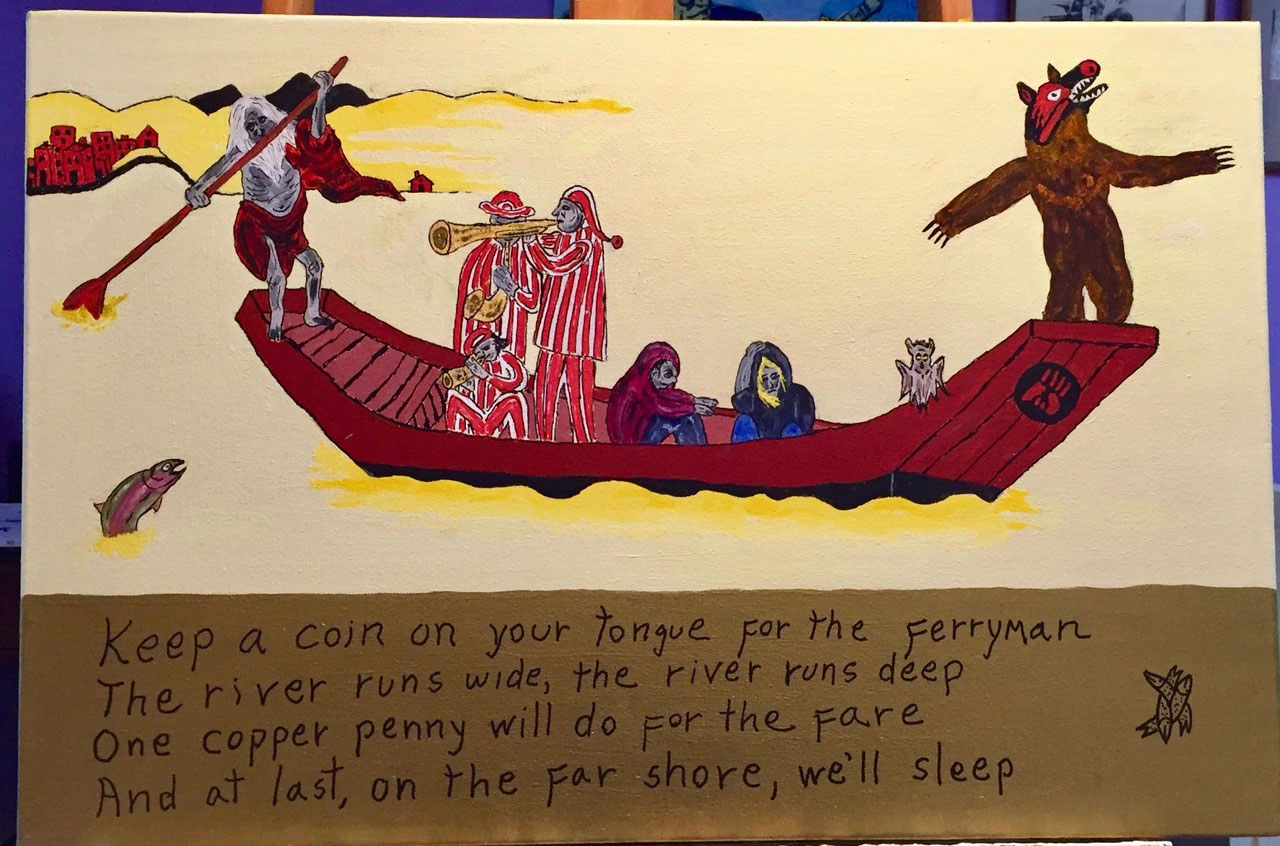 Keep a coin on your tongue for the ferryman
The river runs wide, the river runs deep
One copper penny will do for the fare
And at last, on the far shore, we'll sleep